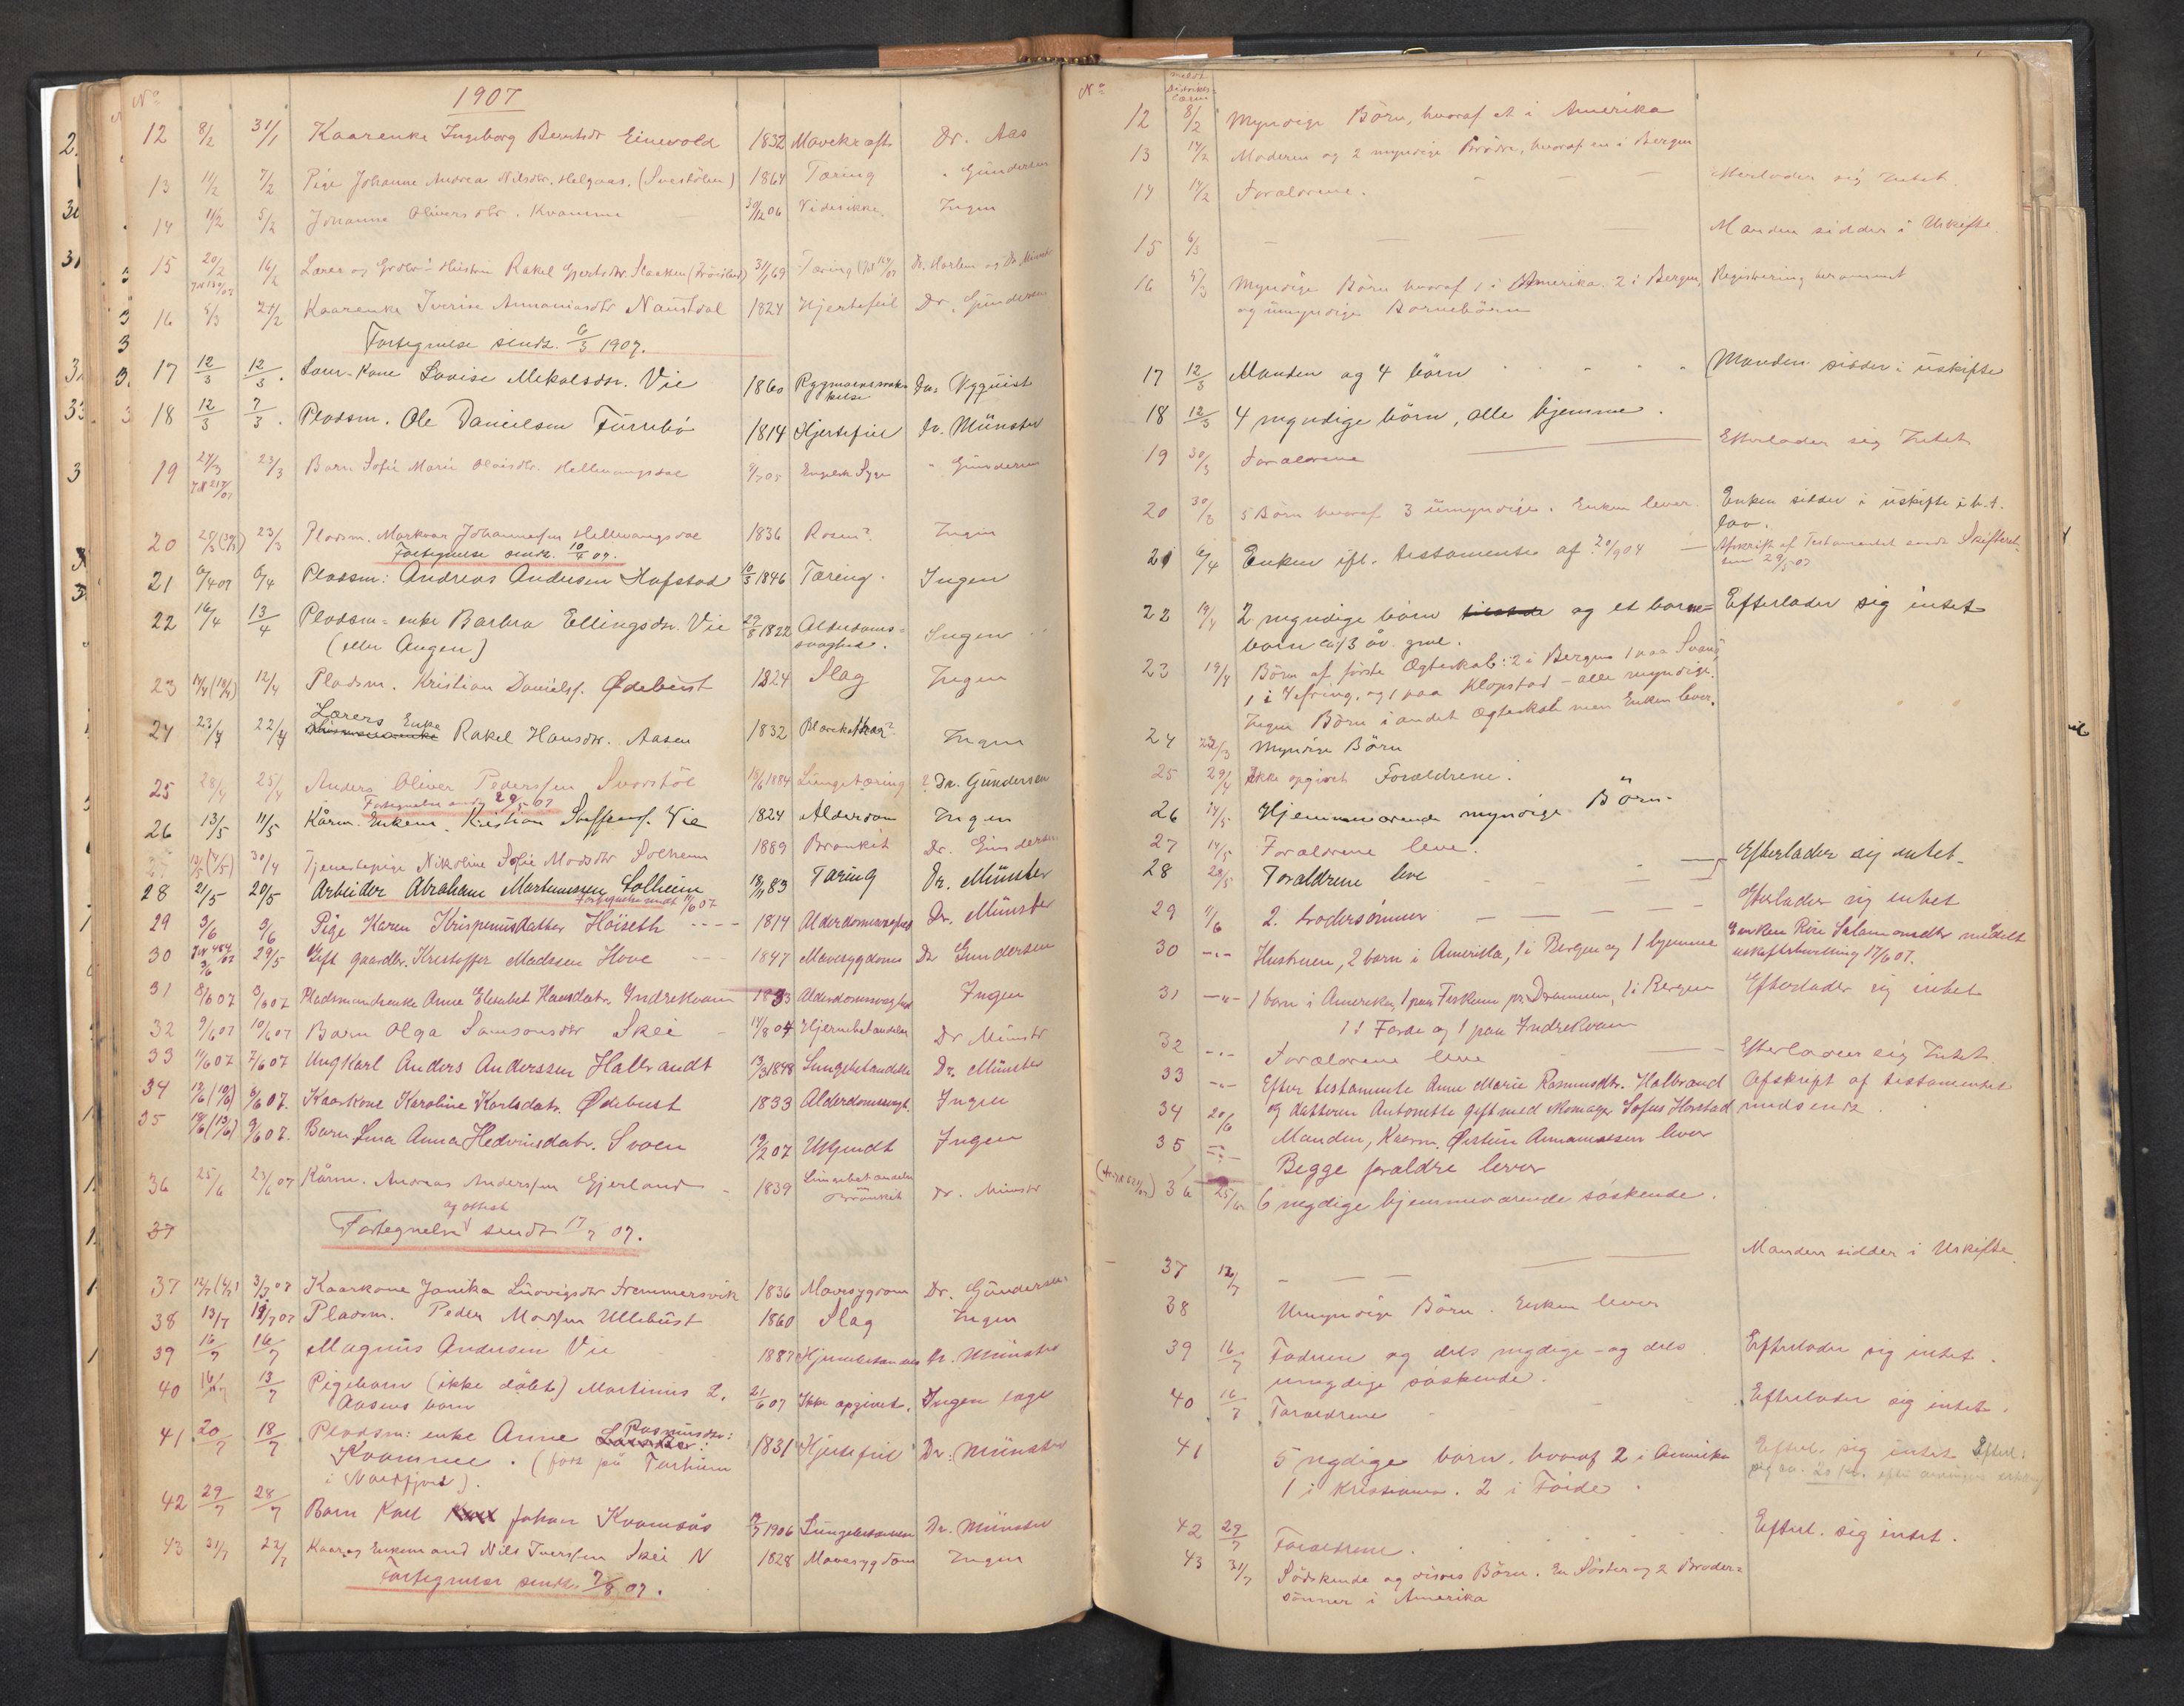 1907
No
12 8/2 31/1 Kaarenke Ingeborg Berntsdr Einevold 1832 Mavekræft Dr. Aas
13 11/2 7/2 Pige Johanne Andrea Nilsdtr. Helgaas. (Svestølen) 1864 Tæring " Gundersen
14 11/2 5/2 Johanne Oliversdtr. Kvamme 30/12 06 Ingen
15 20/2 16/2 Lærer og Hustru Rakel 3/1 69 Tæring Dr. Horlen og Dr. Münster
16 5/3 24/2 Kaarenke Iverine Annaniasdtr Naustdal 1824 Hjertefeil Dr. Gundersen
Fortegnelse sendt. 6/3 1907.
17 12/3 12/3. Kone Lovise Mikalsdr. Vie 1860 Dr. Nyquist
18 12/3 7/3. Pladsm. Ole Danielsen Furubø 1814 Hjertefeil Dr. Münster
19 27/3 23/3 Barn Sofie Marie Hellevangsdal Engelsk Syge " Gundersen
20 23/3 Pladsm. Markvar Johannesen Hellevangsdal 1836 Rosen? Ingen
Fortegnelse sendt. 10/4 07.
21 6/4 07 6/4 Pladsm: Andreas Andersen Hafstad 1846 Tæring. Ingen
22 16/4 13/4 Pladsm= enke Barbra Ellingsdr. Vie 1822 Alderdoms=
(eller Angen) svaghed. Ingen
23 12/4 Pladsm. Kristian Danielsf. Ødebust 1824 Slag Ingen
Lærers Enke
24 23/4 22/4 Rakel Hansdtr. Aasen 1832 Ingen
25 28/4 25/4 Anders Oliver Pederssen Svorstøl 1884 Lungetæring Dr. Gundersen
Fortegnelse sendt 29/5 07
26 13/5 11/5 Kårm. Enkem. Kristian Steffensf. Vie 1824 Alderdom Ingen
30/4 Tjenestepige Nikoline Sofie Madsdtr Solheim 1889 Bronkit Dr. Gundersen
28 21/5 20/5 Arbeider Abraham Martinussen Solheim 83 Tæring Dr. Münster
Fortegnelse sendt 07
29 3/6 3/6 Pige Karen Krispinusdatter Höiseth ---- 1814 Alderdomssvaghed Dr. Münster
30 3/6 29/5 Gift gaardbr. Kristoffer Madssen Hove --- 1847 Mavesygdom Dr Gundersen
31 8/6 07 3/6 07 Pladsmandsenke Anne Elisabet Hansdatr. Indrekvam 1833 Alderdomssvaghed Ingen
32 9/6 07 10/6 07 Barn Olga Samsonsdtr Skei 14/8 04 Hjernebetændelse Dr Münster
33 11/6 07 7/6 07 Ungkarl Anders Anderssen Halbrandt 1848 Lungebetændelse Dr. Münster
34 6/6 07. Kaarkone Karoline Karlsdatr. Ødebust 1833 Alderdomssvagh. Ingen
35 9/6 07. Barn Lina Anna Hedvinsdatr. Svoen 07 Ukjendt Ingen
36 25/6 23/6 07 Kårm. Andreas Anderssen Gjerland 1839 Lungebetændelse
Bronkit Dr. Münster
37 Fortegnelse og attest sendt 17/7 07.
37 3/7 07 Kaarkone Janika Ludvigsdtr Fremmersvik 1836 Mavesygdom Dr. Gundersen
38 13/7 07 Pladsm. Peder Madssen Ullebust 1860 Slag Ingen
39 16/7 16/7 Magnus Andersen Vie 1887 Hjernebetændelse Dr. Münster
40 16/7 13/7 Pigebarn (ikke døbt) Martinus L. 21/6 07 Ikke opgivet. Ingen læge
Aasens barn
41 20/7 18/7 Pladsm: enke Anne Rasmusdr: 1831 Hjertefeil Dr. Münster
Kvamme. (født på
i Nordfjord).
42 29/7 28/7 Barn Karl Johan Kvamsås 1906 Lungebetændelse Dr. Münster
43 31/7 22/7 Kaar og Enkemand Nils Iverssen Skei N 1828 Mavesygdom Ingen
Fortegnelse sendt. 7/8 07.
No
meldt
12 8/2 Myndige Börn, hvoraf et i Amerika
13 14/2 Moderen og 2 myndige Brödre, hvoraf en i Bergen
14 14/2 Forældrene. - - - Efterlader sig Intet
15 6/3 - - - - Manden sidder i Uskifte.
16 5/3 Myndige Börn hvoraf 1 i Amerika. 2 i Bergen, Registrering berammet
og umyndige Barnebörn
17 12/3 Manden og 4 börn " " " Manden sidder i uskifte
18 12/3 4 myndige börn, alle hjemme.
19 30/3 Forældrene Efterlader sig Intet
20 30/3 5 Börn hvoraf 3 umyndige. Enken lever. Enken sidder i uskifte i h.t.
lov.
21 6/4 Enken ifl. testamente af 20/9 04 — Afskrift af Testamentet sendt Skifteret-
ten 29/5 07
22 19/4 2 myndige börn og et barne= Efterlader sig intet
barn 13 år. gml.
23 19/4 Börn af förste Ægteskab: 2 i Bergen 1 paa
1 i Vefring, og 1 paa Klopstad - alle myndige.
Ingen Börn i andet Ægteskab men Enken lever.
24 Myndige Börn
25 29/4 Ikke opgivet Forældrene.
26 14/5 Hjemmeværende myndige Börn
27 14/5 Forældrene leve.
28 28/5 Forældrene leve - - — Efterlader sig intet
29 11/6 2. brodersønner — — — Efterlader sig intet
30 -"- Hustruen, 2 børn i Amerika, 1 i Bergen og 1 hjemme Enken Rise Salamonsdtr meddelt
uskiftebevilling 17/6 07.
31 -"- 1 barn i Amerika, 1 paa Fiskum pr. Drammen, 1 i Bergen Efterlader sig intet
1 i Førde og 1 paa Indrekvam
32 -"- Forældrene leve — Efterlader sig Intet
33 -"- Efter testamente Anne Marie Rasmusdtr. Halbrand Afskrift af testamentet
og datteren Antonette gift med Sofus Horstad medsendt.
34 20/6 Manden, Kaarm. Øistein Annaniassen lever
35 -"- Begge forældre lever
36 25/6 6 mydige hjemmeværende söskende.
37 12/7 - — — — Manden sidder i Uskifte
38 Umyndige Börn. Enken lever
39 16/7 Faderen og dels mydige - og dels Efterlader sig intet.
umydige söskende.
40 16/7 Forældrene - - Efterlader sig intet.
41 5 mydige börn, hvoraf 2 i Amerika Efterl. sig intet
1 i Kristiania. 2 i Förde.
42 29/7 Forældrene. Efterl. sig intet.
43 31/7 Södskende og disses Börn. En Söster og 2 Broder=
sönner i Amerika